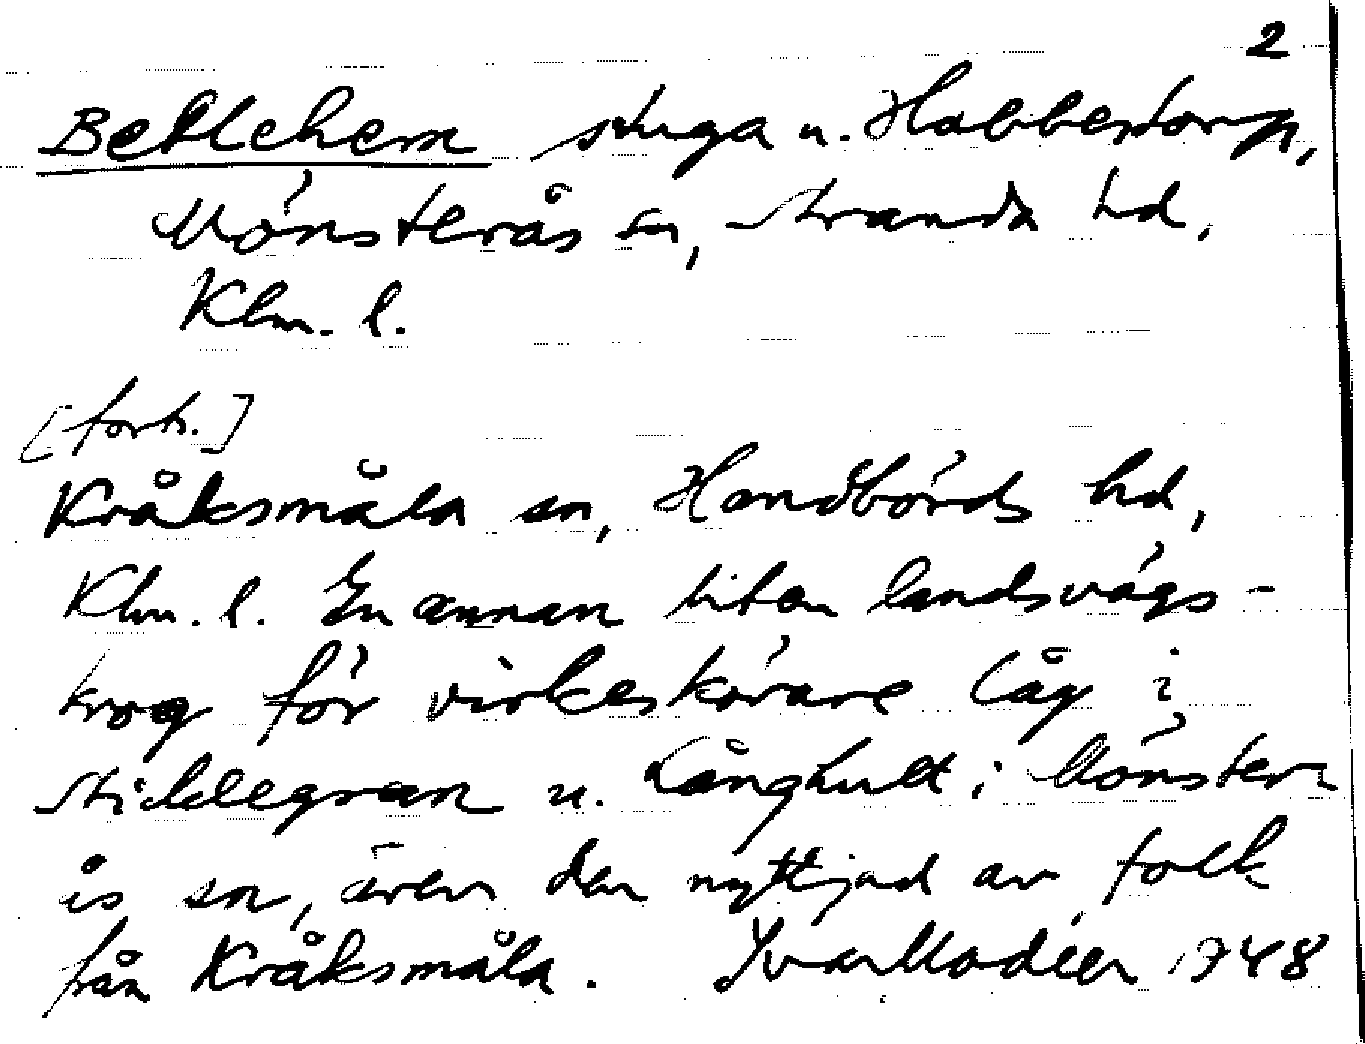 2
Betlehem stuga u. Habbestorp,
Mönsterås sn, Stranda hd,
Klm. l.
[forts.]
Kråksmåla sn, Handbörds hd,
Klm. l. En annan liten landsvägs-
krog för virkeskörare låg i
Stillegran u. Långhult i Mönster-
ås sn, även den nyttjad av folk
från Kråksmåla. Ivar Modéer 1948